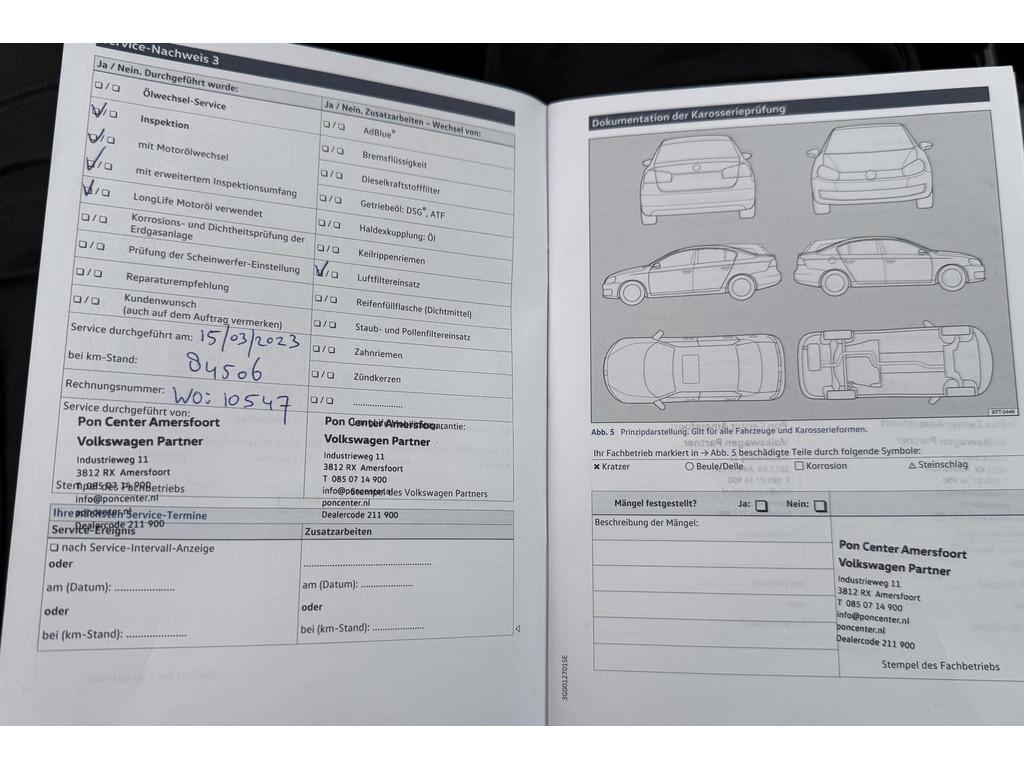 Service-Nachweis 3
Ja / Nein. Durchgeführt wurde:
Ölwechsel-Service
Inspektion
mit Motorölwechsel
mit erweitertem Inspektionsumfang
LongLife Motoröl verwendet
Korrosions- und Dichtheitsprüfung der
Erdgasanlage
Prüfung der Scheinwerfer-Einstellung
Reparaturempfehlung
Kundenwunsch
(auch auf dem Auftrag vermerken)
Service durchgeführt am: 15/03/2023
bei km-Stand: 84506
Rechnungsnummer: WO: 10547
Service durchgeführt von:
Pon Center Amersfoort
Volkswagen Partner
Industrieweg 11
3812 RX Amersfoort
T 085 07 14 900
Stempel des Fachbetriebs
info@poncenter.nl
poncenter.nl
Dealercode 211 900
Ja / Nein. Zusatzarbeiten – Wechsel von:
AdBlue®
Bremsflüssigkeit
Dieselkraftstofffilter
Getriebeöl: DSG®, ATF
Haldexkupplung: Öl
Keilrippenriemen
Luftfiltereinsatz
Reifenfüllflasche (Dichtmittel)
Staub- und Pollenfiltereinsatz
Zahnriemen
Zündkerzen
....................
Pon Center Amersfoort
garantie:
Volkswagen Partner
Industrieweg 11
3812 RX Amersfoort
T 085 07 14 900
info@poncenter.nl
Stempel des Volkswagen Partners
poncenter.nl
Dealercode 211 900
Ihre nächsten Service-Termine
Service-Ereignis
Zusatzarbeiten
nach Service-Intervall-Anzeige
oder
am (Datum): ....................
oder
bei (km-Stand): ....................
..........................................
am (Datum): ....................
oder
bei (km-Stand): ....................
Dokumentation der Karosserieprüfung
B7T-0449
Abb. 5 Prinzipdarstellung. Gilt für alle Fahrzeuge und Karosserieformen.
Ihr Fachbetrieb markiert in → Abb. 5 beschädigte Teile durch folgende Symbole:
Kratzer
Beule/Delle
Korrosion
Steinschlag
Mängel festgestellt? Ja: Nein:
Beschreibung der Mängel:
Pon Center Amersfoort
Volkswagen Partner
Industrieweg 11
3812 RX Amersfoort
T 085 07 14 900
info@poncenter.nl
poncenter.nl
Dealercode 211 900
Stempel des Fachbetriebs
3G0012701SE